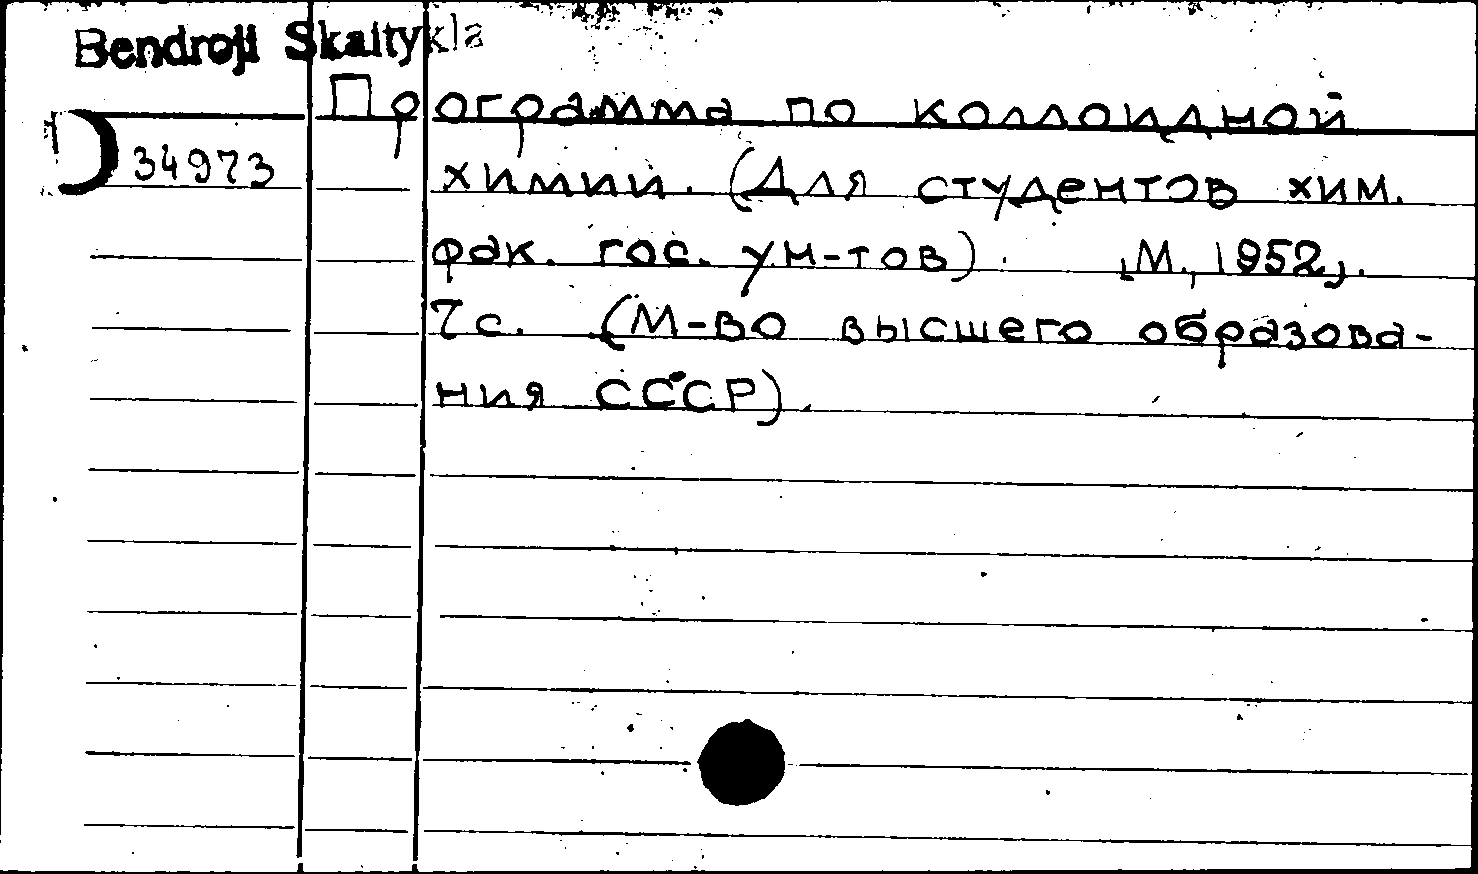 Bendroji Skaitykla
Программа по коллоидной
34973 химии. (Для студентов хим.
фак. гос. ун-тов). [М., 1952].
7с. (М-во высшего образова-
ния СССР).